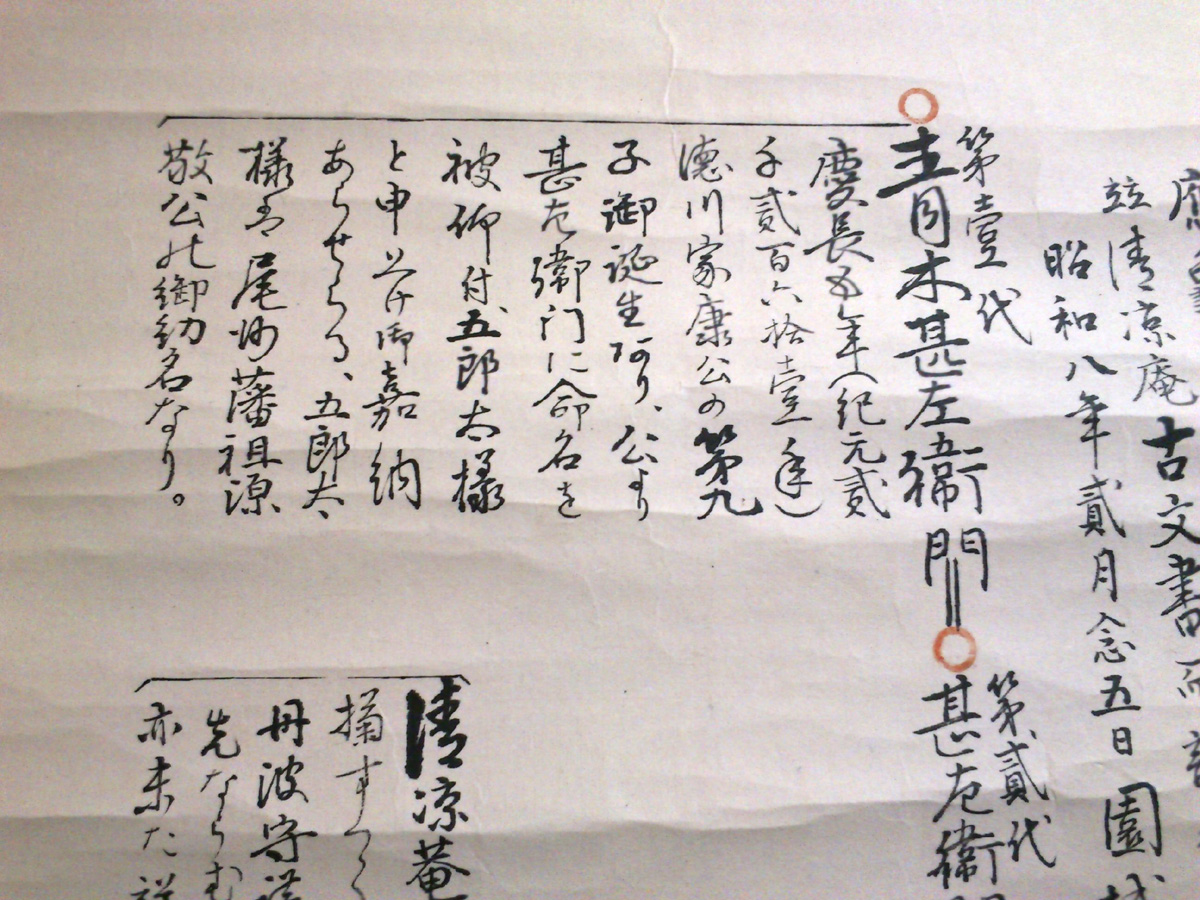 竝清凉庵古文書
昭和八年貳月念五日 園
第壹代
青木甚左衛門
慶長五年(紀元貳
千貳百六拾壹年)
徳川家康公の第九
子御誕生あり、公より
甚左衛門に命名を
被仰付、五郎太様
と申上け御嘉納
あらせらる、五郎太
様は尾州藩祖源
敬公の御幼名なり。
第貳代
甚左衛門
清凉菴
丹波守
先ならむ
亦未た